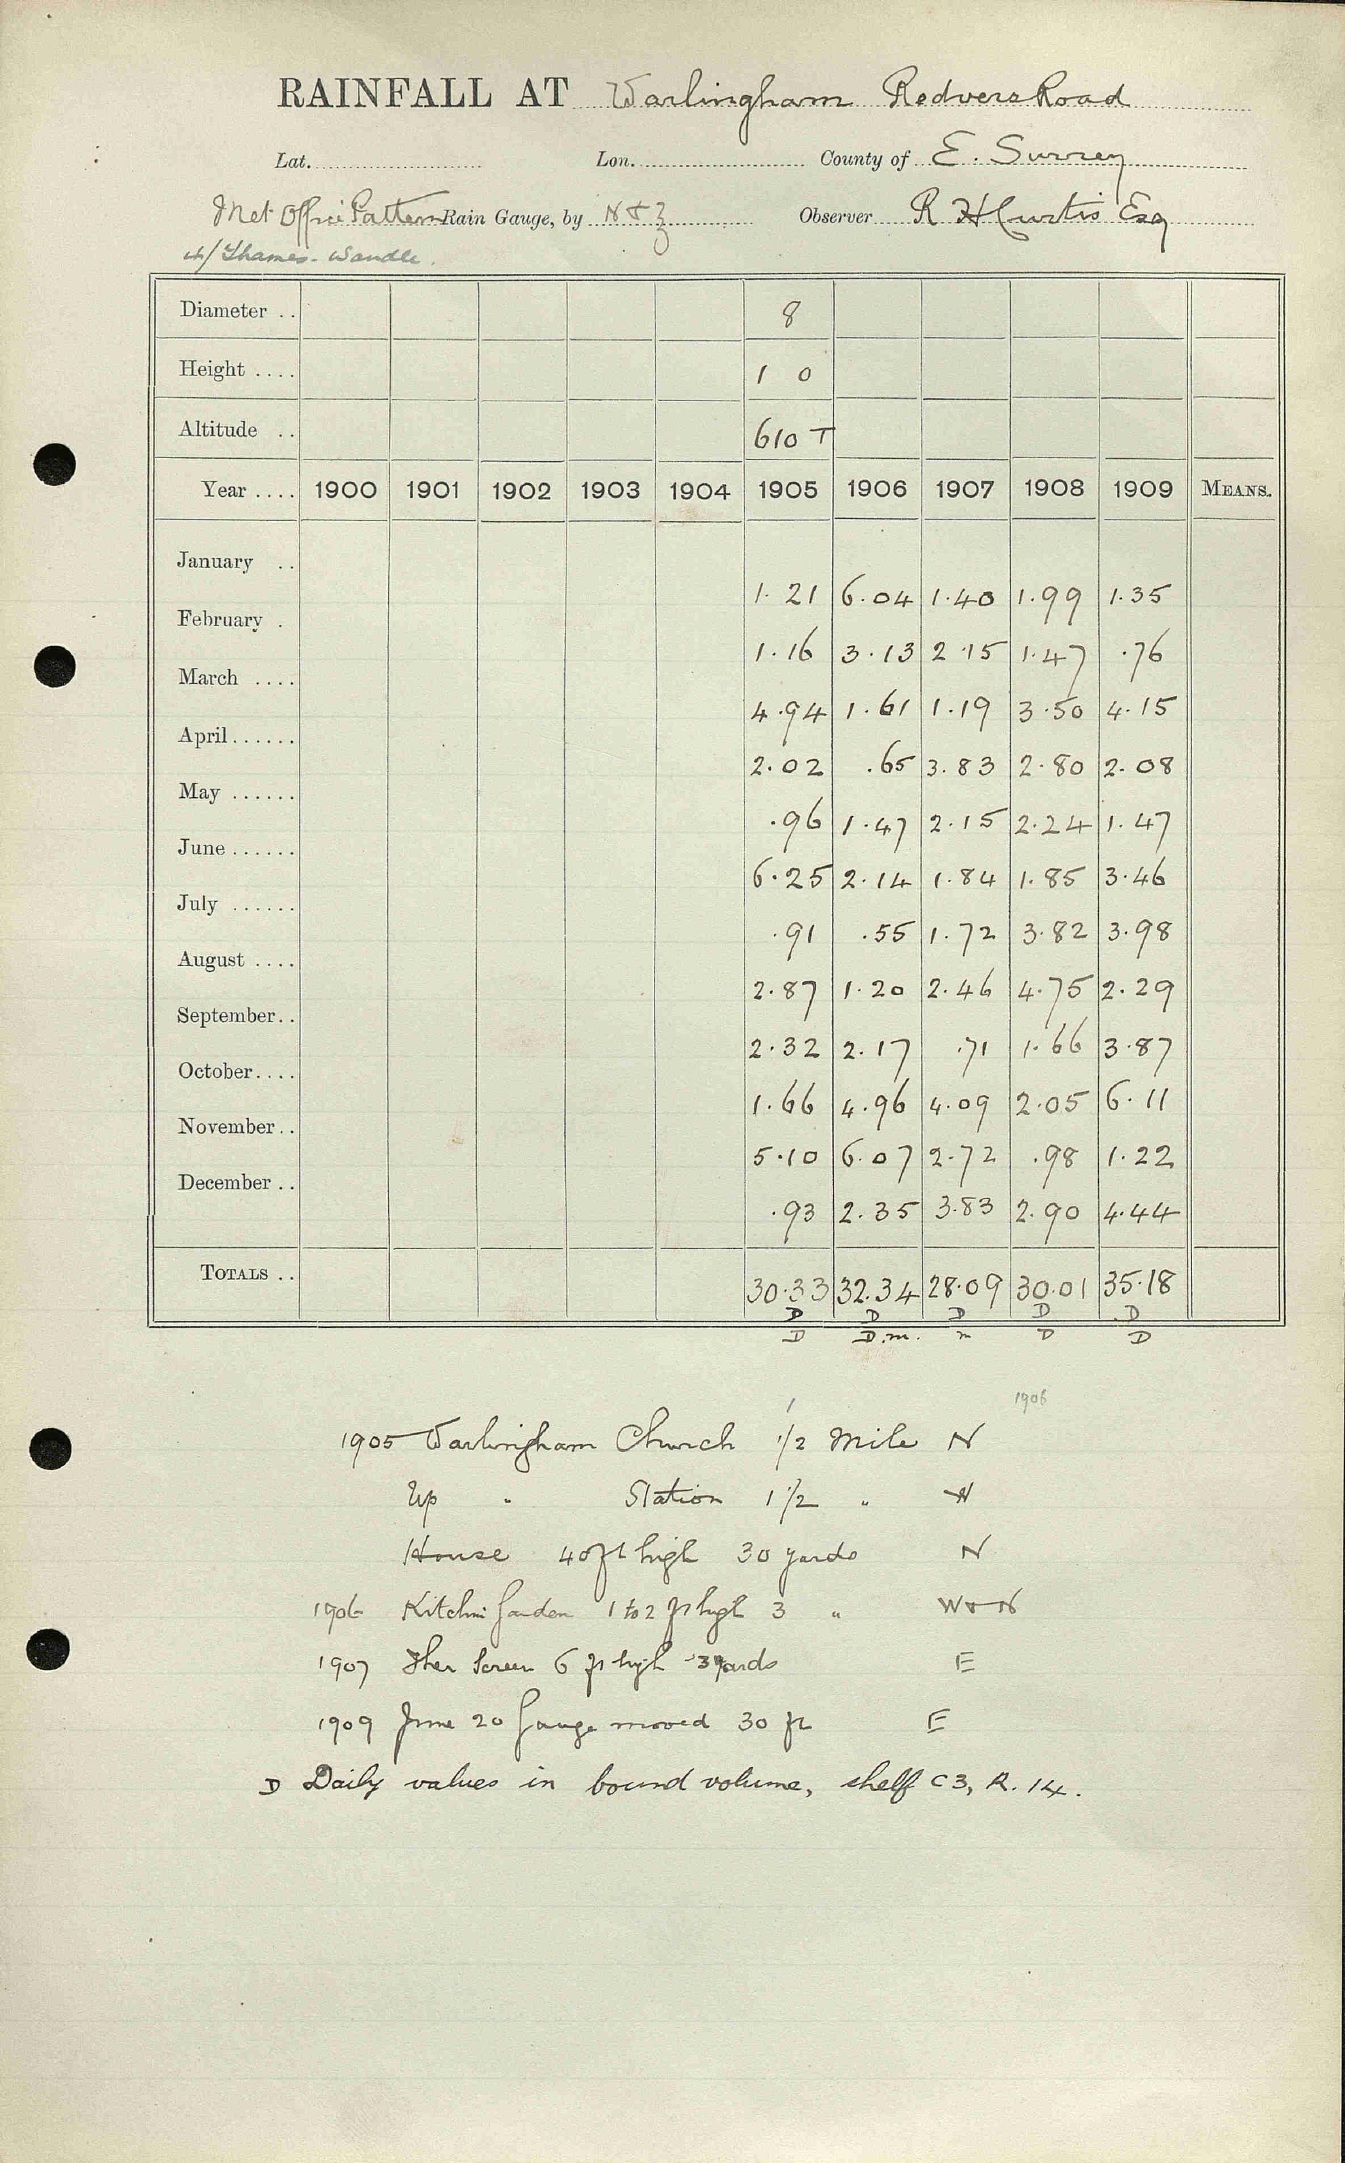 RAINFALL AT Warlingham Redvers Road
Lat. Lon. County of E. Surrey
Met Office Pattern Rain Gauge, by N & Z Observer R H Curtis Esq
4/Thames-Wandle.
Diameter .. 8
Height .... 1 0
Altitude .. 610 T
Year .... 1900 1901 1902 1903 1904 1905 1906 1907 1908 1909 MEANS.
January .. 1.21 6.04 1.40 1.99 1.35
February . 1.16 3.13 2.15 1.47 .76
March .... 4.94 1.61 1.19 3.50 4.15
April...... 2.02 .65 3.83 2.80 2.08
May ...... .96 1.47 2.15 2.24 1.47
June ...... 6.25 2.14 1.84 1.85 3.46
July ...... .91 .55 1.72 3.82 3.98
August .... 2.87 1.20 2.46 4.75 2.29
September.. 2.32 2.17 .71 1.66 3.87
October.... 1.66 4.96 4.09 2.05 6.11
November.. 5.10 6.07 2.72 .98 1.22
December .. .93 2.35 3.83 2.90 4.44
TOTALS .. 30.33 32.34 28.09 30.01 35.18
D D D D D
D D.m. m D D
1906
1905 Warlingham Church 1/2 Mile N
Up " Station 1 1/2 " W
House 40ft high 30 yards N
1906 Kitchn Garden 1 to 2 ft high 3 " W & N
1907 Ther Screen 6 ft high 3 yards E
1909 June 20 Gauge moved 30 ft E
D Daily values in bound volume, shelf C3, R. 14.